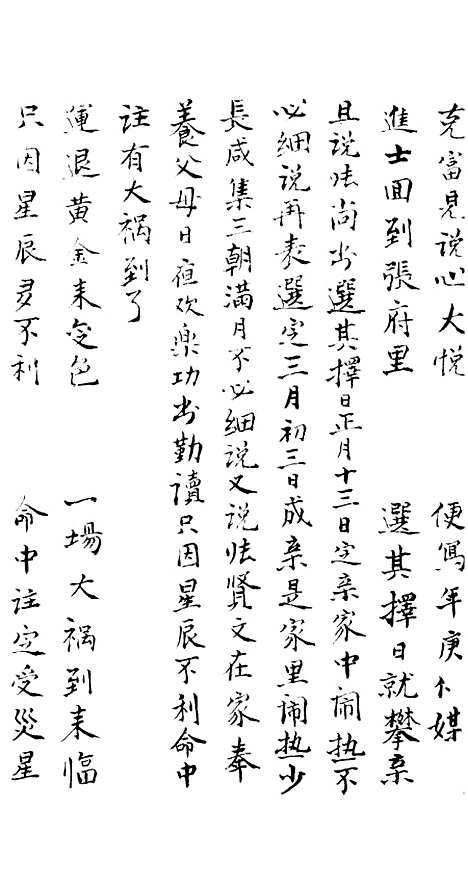 克富見说心大悦　便寫年庚卜媒
進士回到張府里　選其擇日就攀亲
且说怯尚出選其擇日正月十三日定亲家中闹热不
必细说再表選定三月初三日成亲是家里闹热少
長咸集三朝满月不必细说又说怯贤文在家奉
養父母日夜欢樂功出勤讀只因星辰不利命中
註有大祸到了
運退黄金未变色　一場大祸到来临
只因星辰多不利　命中註定受災星